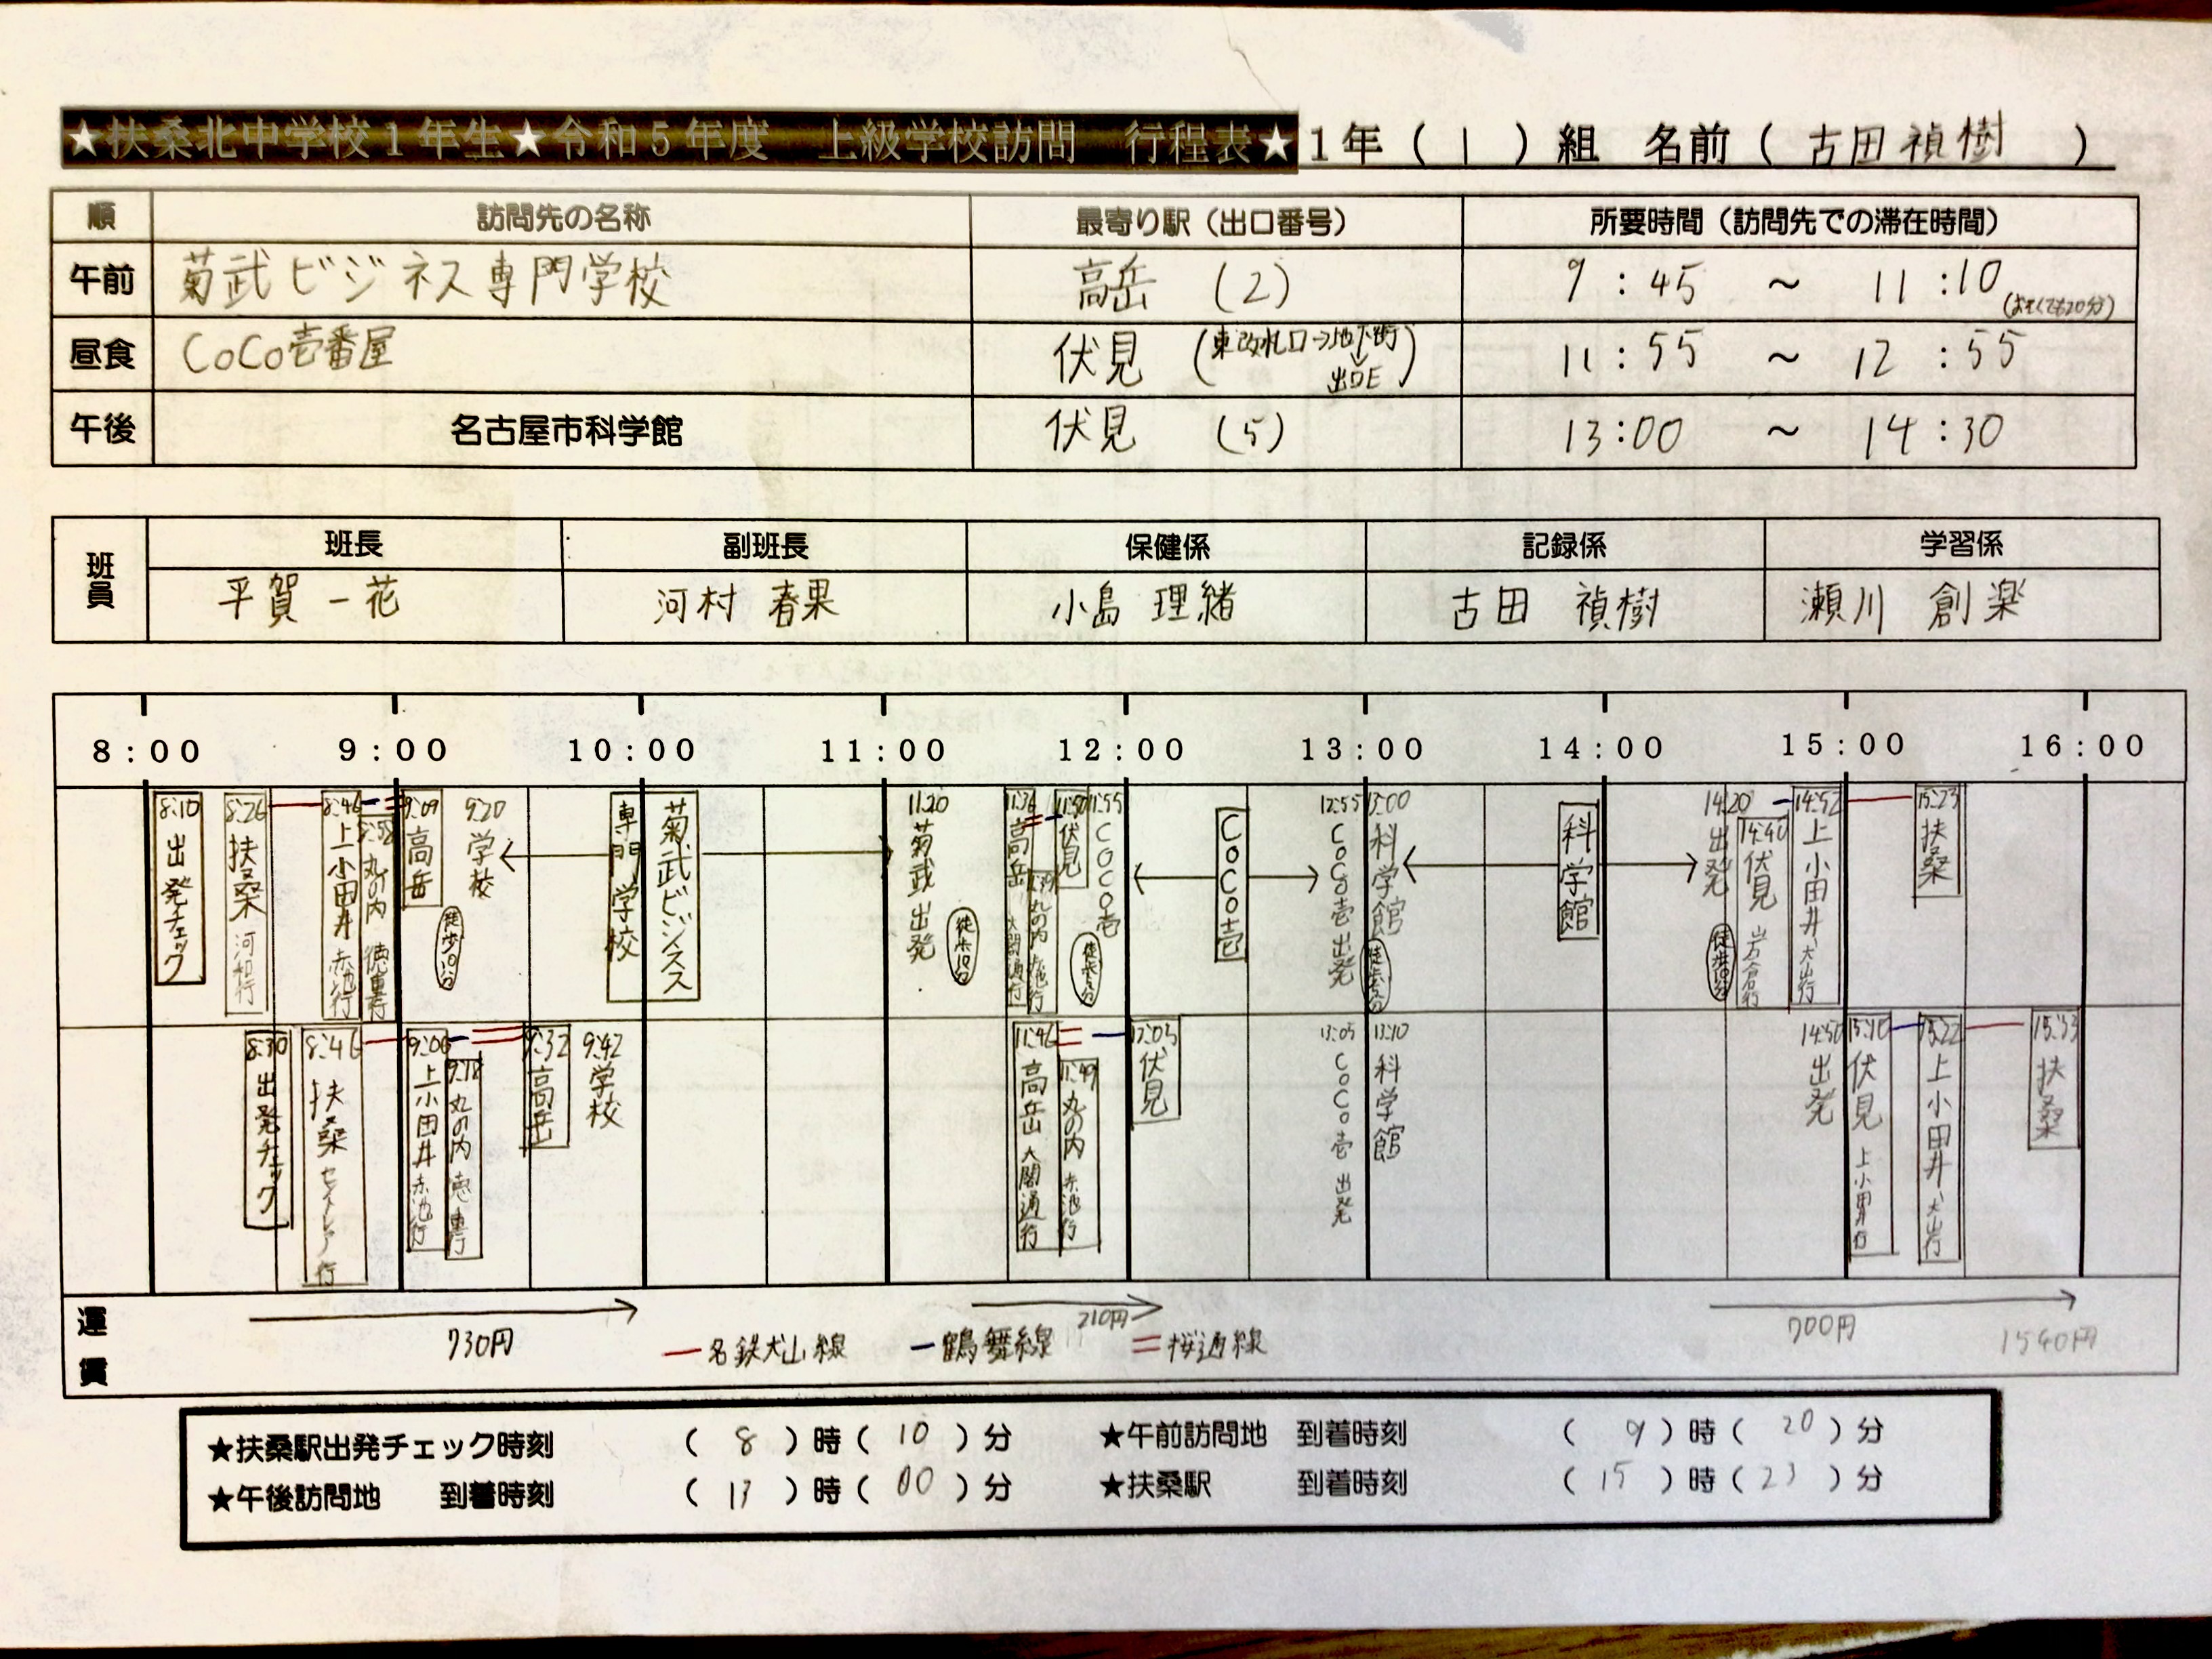 ★扶桑北中学校1年生★令和5年度　上級学校訪問　行程表★ 1年（ 1 ）組　名前（ 古田禎樹 ）
順　訪問先の名称　最寄り駅（出口番号）　所要時間（訪問先での滞在時間）
午前　菊武ビジネス専門学校　高岳（2）　9:45 ～ 11:10
(おそくても20分)
昼食　CoCo壱番屋　伏見（東改札口→地下街→出口E）　11:55 ～ 12:55
午後　名古屋市科学館　伏見（5）　13:00 ～ 14:30
班員　班長　副班長　保健係　記録係　学習係
平賀 一花　河村 春果　小島 理緒　古田 禎樹　瀬川 創楽
8:00　9:00　10:00　11:00　12:00　13:00　14:00　15:00　16:00
8:10 出発チェック
8:26 扶桑
8:46 上小田井 赤池行
丸の内 徳重行
9:09 高岳
徒歩10分
9:20 学校
菊武ビジネス
専門学校
11:20 菊武出発
徒歩10分
11:36 高岳 太閤通行
11:39 丸の内 赤池行
11:50 伏見
徒歩5分
11:55 CoCo壱
CoCo壱
12:55 CoCo壱出発
徒歩5分
13:00 科学館
科学館
14:20 出発
徒歩10分
14:40 伏見 岩倉行
14:52 上小田井 犬山行
15:23 扶桑
8:30 出発チェック
8:46 扶桑 セントレア行
9:06 上小田井 赤池行
9:18 丸の内
9:32 高岳
9:42 学校
11:46 高岳 太閤通行
11:49 丸の内 赤池行
12:03 伏見
13:05 CoCo壱 出発
13:10 科学館
14:50 出発
15:10 伏見 上小田井行
15:22 上小田井 犬山行
15:53 扶桑
運賃　730円　210円　700円　1540円
名鉄犬山線　鶴舞線　桜通線
★扶桑駅出発チェック時刻　（ 8 ）時（ 10 ）分　★午前訪問地　到着時刻　（ 9 ）時（ 20 ）分
★午後訪問地　到着時刻　（ 13 ）時（ 00 ）分　★扶桑駅　到着時刻　（ 15 ）時（ 23 ）分